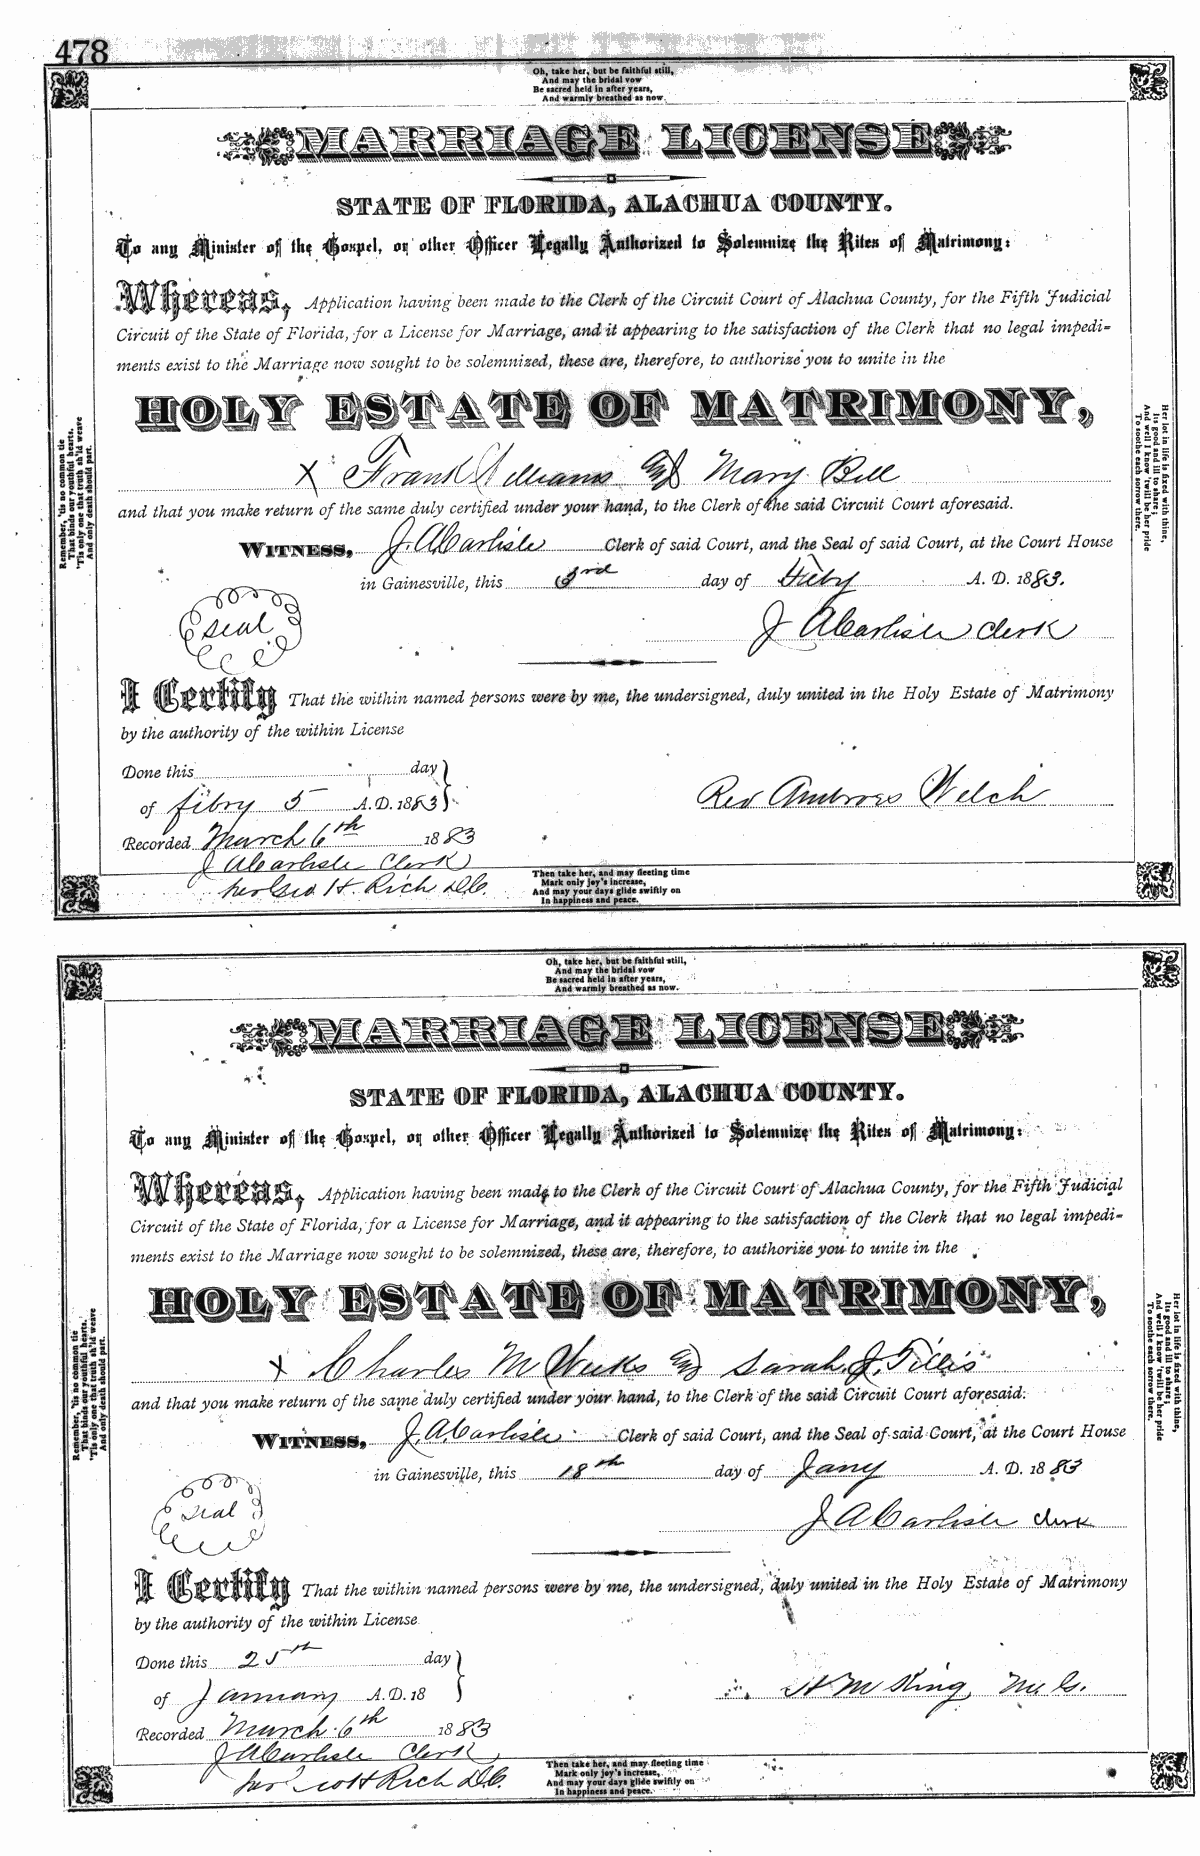 478
Oh, take her, but be faithful still,
And may the bridal vow
Be sacred held in after years,
And warmly breathed as now.
MARRIAGE LICENSE
STATE OF FLORIDA, ALACHUA COUNTY.
To any Minister of the Gospel, or other Officer Legally Authorized to Solemnize the Rites of Matrimony:
Whereas, Application having been made to the Clerk of the Circuit Court of Alachua County, for the Fifth Judicial
Circuit of the State of Florida, for a License for Marriage, and it appearing to the satisfaction of the Clerk that no legal impedi-
ments exist to the Marriage now sought to be solemnized, these are, therefore, to authorize you to unite in the
HOLY ESTATE OF MATRIMONY,
X Frank Williams and Mary Bell
and that you make return of the same duly certified under your hand, to the Clerk of the said Circuit Court aforesaid.
WITNESS, J. A Carlisle Clerk of said Court, and the Seal of said Court, at the Court House
in Gainesville, this 3rd day of Feby A. D. 1883.
Seal
J A Carlisle Clerk
I Certify That the within named persons were by me, the undersigned, duly united in the Holy Estate of Matrimony
by the authority of the within License
Done this day
of febry 5 A.D. 1883
Rev Ambross Welch
Recorded March 6th 1883
J A Carlisle Clerk
per Geo H. Rich D.C.
Remember, 'tis no common tie
That binds our youthful hearts,
'Tis only one that truth sh'ld weave
And only death should part.
Her lot in life is fixed with thine,
Its good and ill to share;
And well I know 'twill be her pride
To soothe each sorrow there.
Then take her, and may fleeting time
Mark only joy's increase,
And may your days glide swiftly on
In happiness and peace.
Oh, take her, but be faithful still,
And may the bridal vow
Be sacred held in after years,
And warmly breathed as now.
MARRIAGE LICENSE
STATE OF FLORIDA, ALACHUA COUNTY.
To any Minister of the Gospel, or other Officer Legally Authorized to Solemnize the Rites of Matrimony:
Whereas, Application having been made to the Clerk of the Circuit Court of Alachua County, for the Fifth Judicial
Circuit of the State of Florida, for a License for Marriage, and it appearing to the satisfaction of the Clerk that no legal impedi-
ments exist to the Marriage now sought to be solemnized, these are, therefore, to authorize you to unite in the
HOLY ESTATE OF MATRIMONY,
X Charles M Weeks and Sarah J. Tillis
and that you make return of the same duly certified under your hand, to the Clerk of the said Circuit Court aforesaid.
WITNESS, J. A. Carlisle Clerk of said Court, and the Seal of said Court, at the Court House
in Gainesville, this 18th day of Jany A. D. 1883
Seal
J A Carlisle Clerk
I Certify That the within named persons were by me, the undersigned, duly united in the Holy Estate of Matrimony
by the authority of the within License
Done this 25th day
of January A.D. 18
M King, M.G.
Recorded March 6th 1883
J A Carlisle Clerk,
per Geo H Rich D.C.
Remember, 'tis no common tie
That binds our youthful hearts,
'Tis only one that truth sh'ld weave
And only death should part.
Her lot in life is fixed with thine,
Its good and ill to share;
And well I know 'twill be her pride
To soothe each sorrow there.
Then take her, and may fleeting time
Mark only joy's increase,
And may your days glide swiftly on
In happiness and peace.